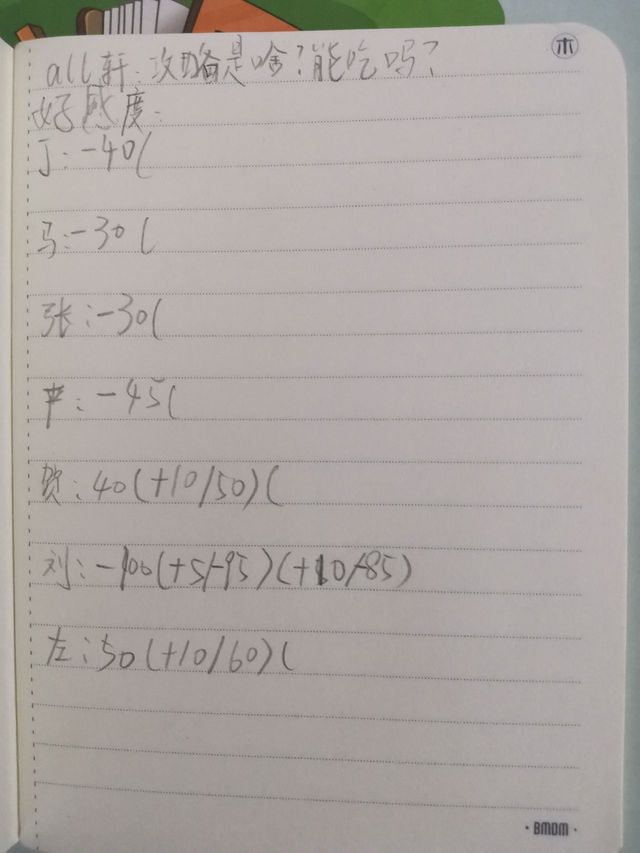 木
all轩:攻略是啥?能吃吗?
好感度:
丁:-40(
马:-30(
张:-30(
严:-45(
贺:40(+10/50)(
刘:-100(+5/-95)(+10/-85)
左:50(+10/60)(
·BMDM·